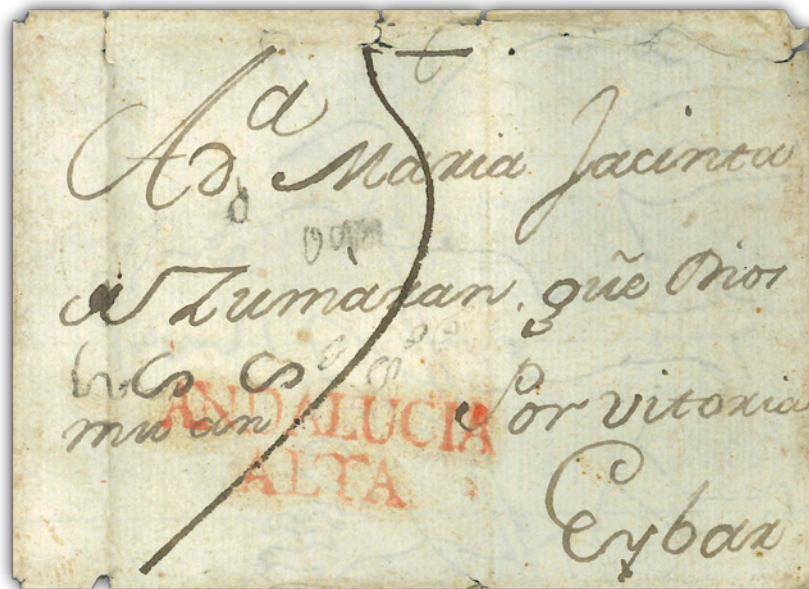 A D.ª Maria Jacinta
Zumaran, que Dios
Por vitoria
ANDALUCIA
ALTA
Eybar